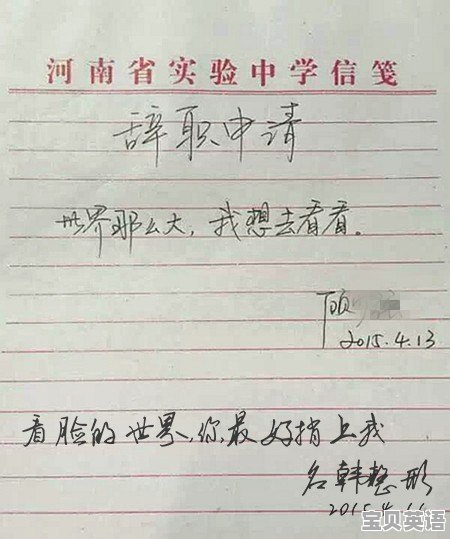 河南省实验中学信笺
辞职申请
世界那么大，我想去看看。
顾
2015.4.13
看脸的世界，你最好捎上我
名韩整形
2015.4.
宝贝英语